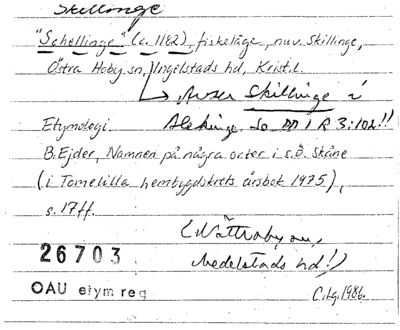 Skillinge
"Schellinge" (c. 1162), fiskeläge, nuv. Skillinge,
Östra Hoby sn, Ingelstads hd, Krist. l.
Avser Skillinge i
Etymologi. Blekinge. Se DD I R 3:102!!
B. Ejder, Namnen på några orter i s.Ö. Skåne
(i Tomelilla hembygdskrets årsbok 1975),
s. 17 ff.
(Nättraby sn,
Medelstads hd!)
26703
OAU etym reg
C.tg. 1986.